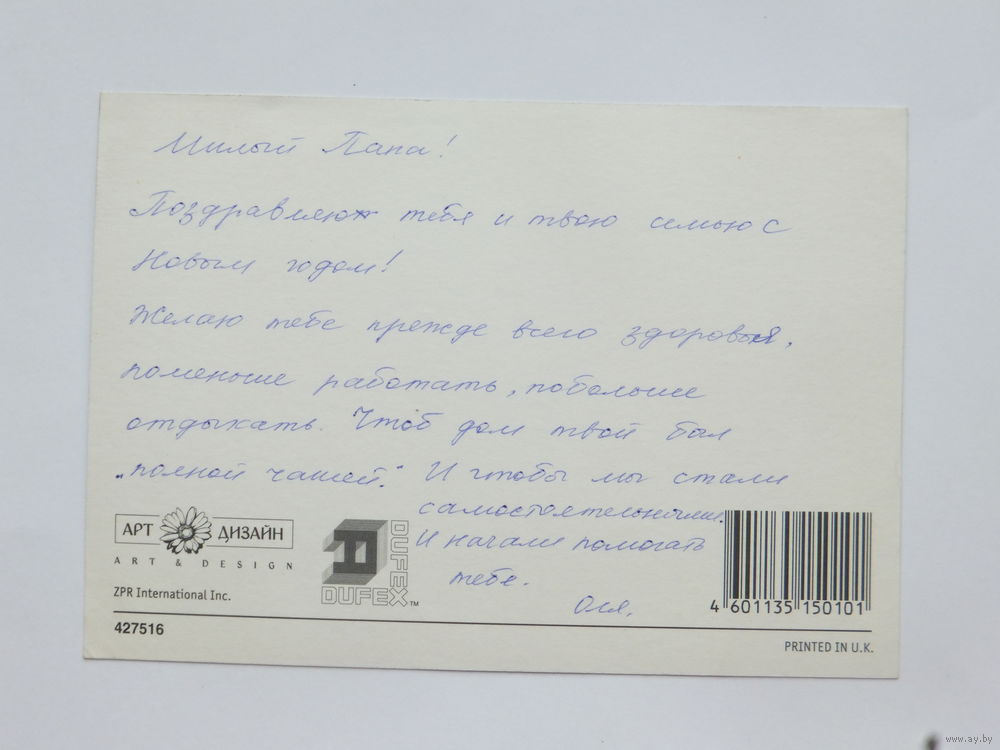 Милый Папа!
Поздравляю тебя и твою семью с
Новым годом!
Желаю тебе прежде всего здоровья,
поменьше работать, побольше
отдыхать. Чтоб дом твой был
„полной чашей“. И чтобы мы стали
самостоятельными.
И начали помогать
тебе.
Оля.
АРТ ДИЗАЙН
ART & DESIGN
DUFEX
DUFEX™
ZPR International Inc.
4 601135 150101
427516
PRINTED IN U.K.
www.ay.by